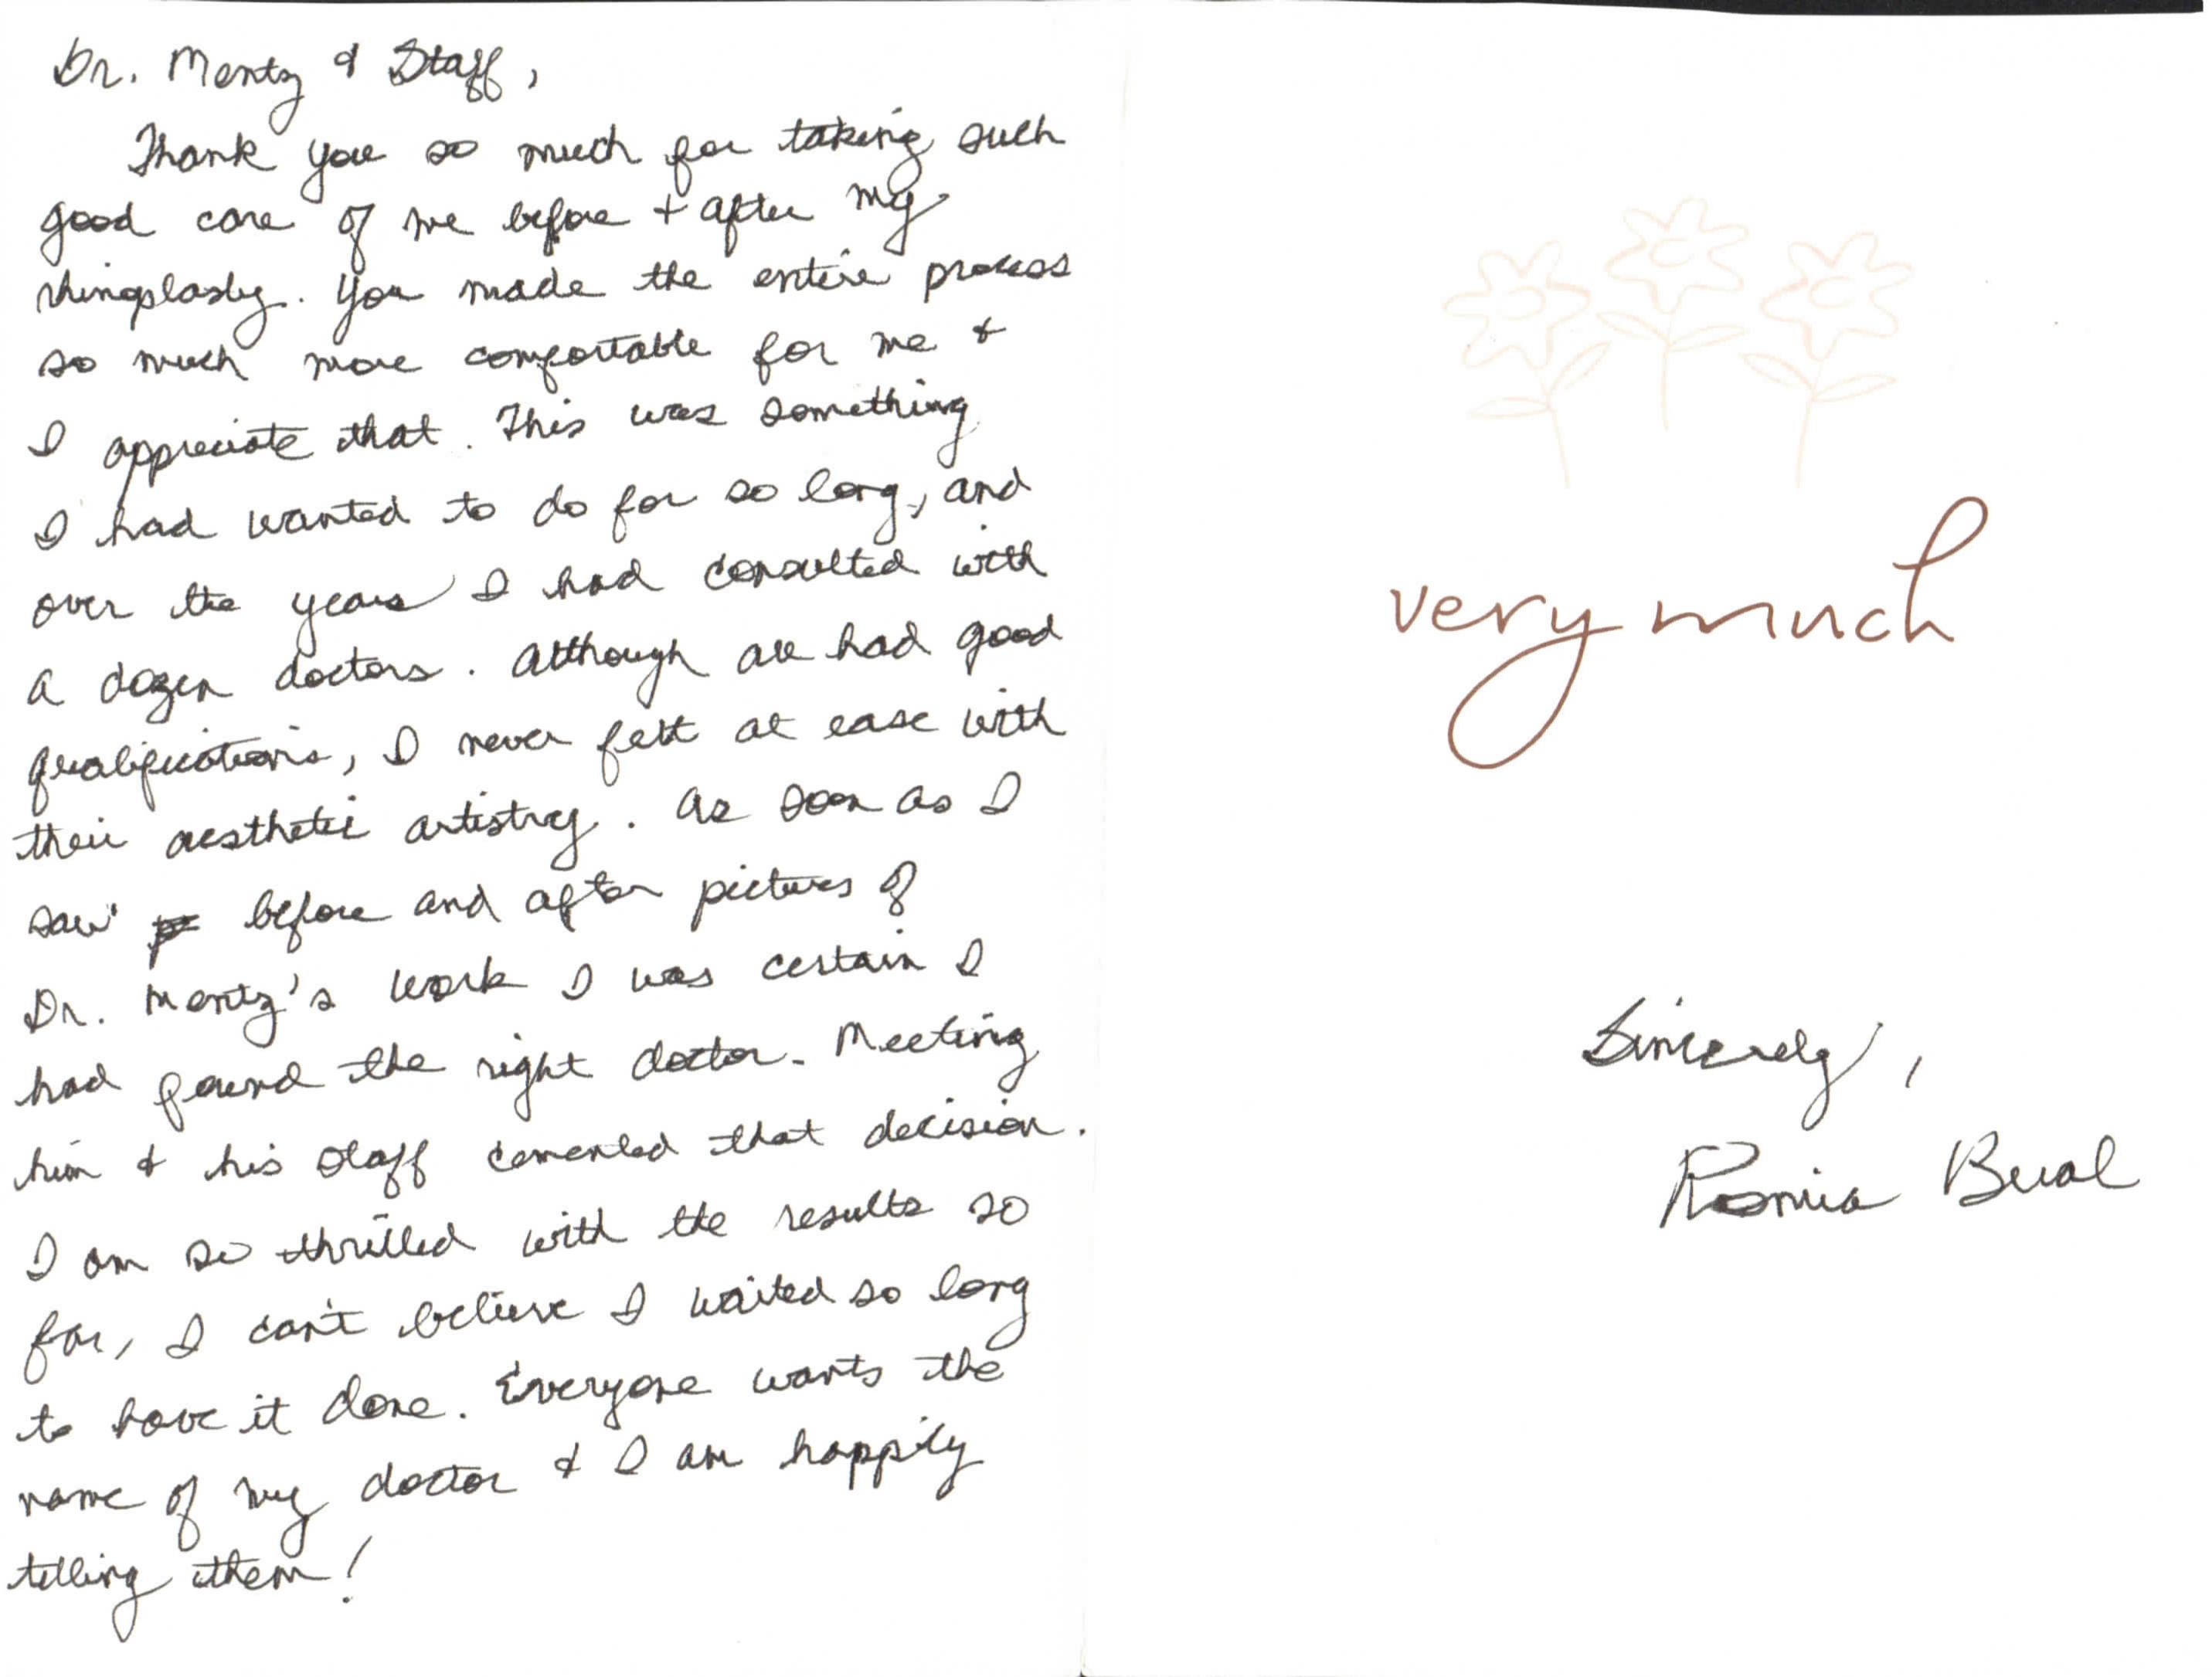 Dr. Mentz & Staff,
Thank you so much for taking such
good care of me before + after my
rhinoplasty. You made the entire process
so much more comfortable for me &
I appreciate that. This was something
I had wanted to do for so long, and
over the years I had consulted with
a dozen doctors. Although all had good
qualifications, I never felt at ease with
their aesthetic artistry. As soon as I
saw before and after pictures of
Dr. Mentz's work I was certain I
had found the right doctor. Meeting
him & his staff cemented that decision.
I am so thrilled with the results so
far, I can't believe I waited so long
to have it done. Everyone wants the
name of my doctor & I am happily
telling them!
very much
Sincerely,